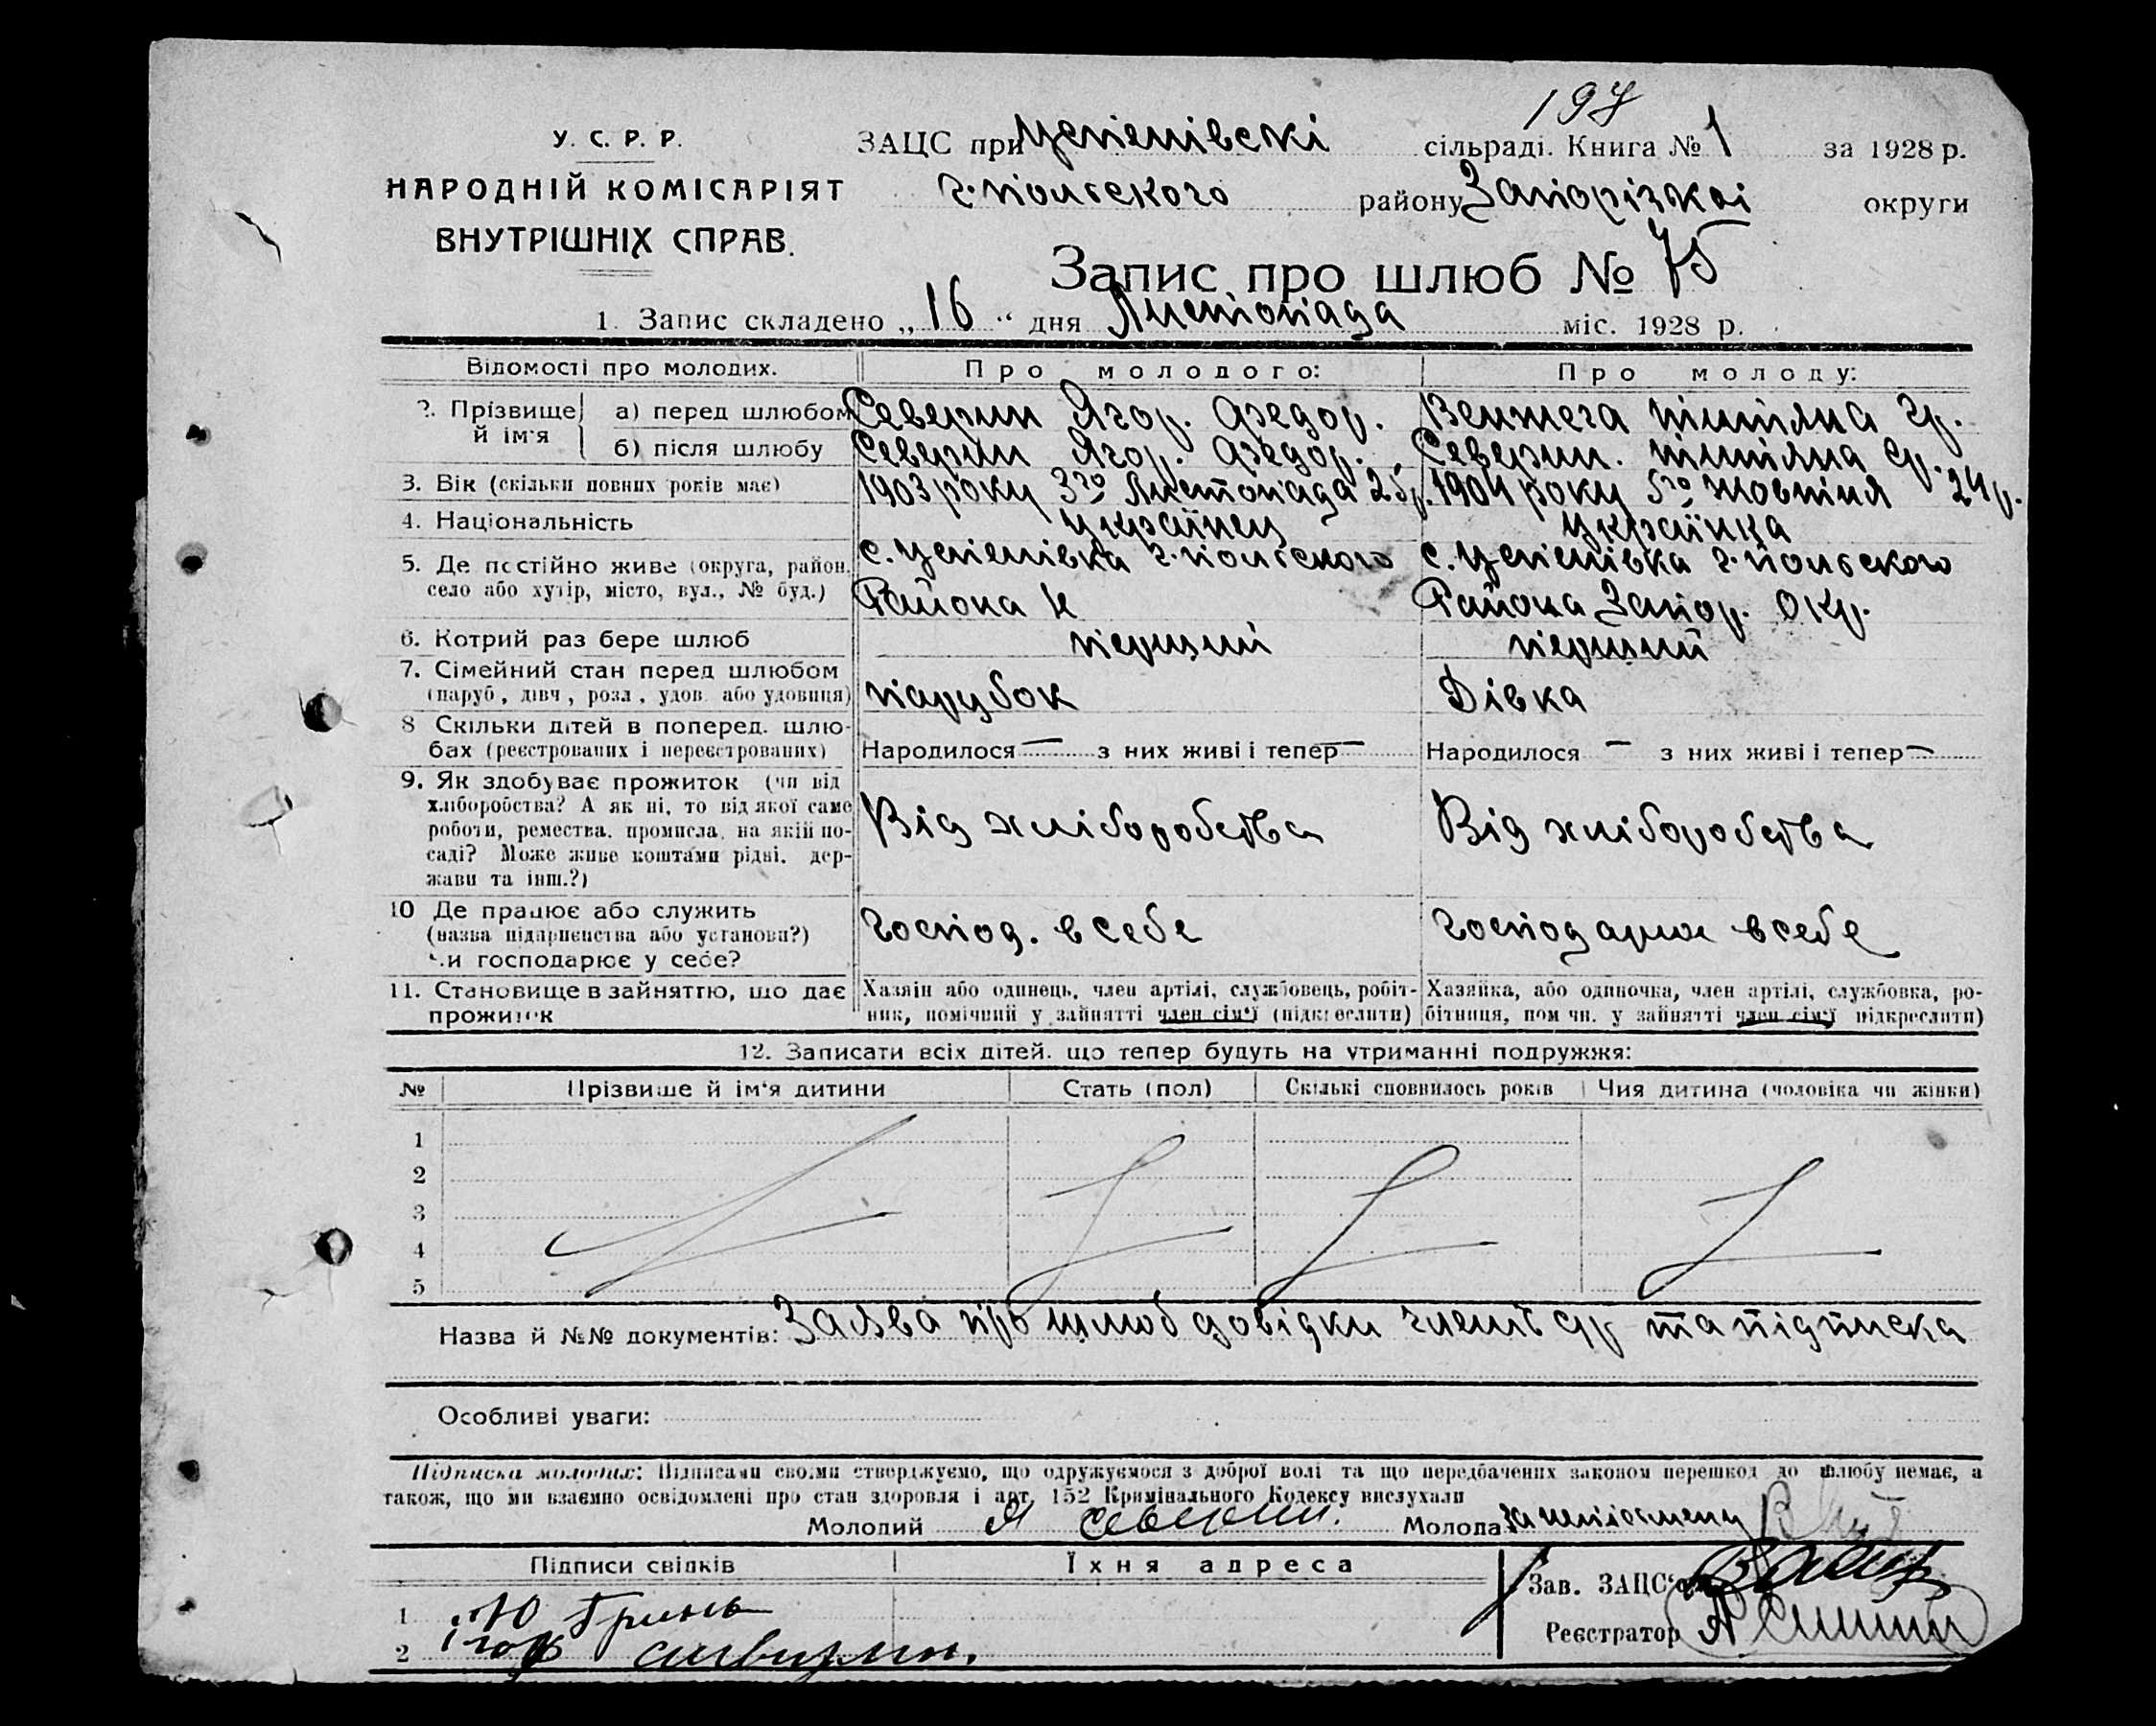 197
У. С. Р. Р.
НАРОДНІЙ КОМІСАРІЯТ
ВНУТРІШНІХ СПРАВ.
ЗАЦС при Успенівскі сільраді. Книга № 1 за 1928 р.
г. польского району Запорізкоі округи
Запис про шлюб № 75
1. Запис складено „16“ дня Листопада міс. 1928 р.
Відомості про молодих. Про молодого: Про молоду:
2. Прізвище й ім'я а) перед шлюбом Северин Ягор. Федор. Венжега титяна Гр.
б) після шлюбу Северин Ягор. Федор. Северин. титяна Гр.
3. Вік (скільки повних років має) 1903 року 3го Листопада 25р. 1904 року 5го жовтня 24р.
4. Національність українец українка
5. Де постійно живе (округа, район, с. Успенівка г. польского с. Успенівка г. польского
село або хутір, місто, вул., № буд.) Района Района Запор. Окр.
6. Котрий раз бере шлюб перший перший
7. Сімейний стан перед шлюбом
(паруб., дівч., розл., удов. або удовиця) парубок Дівка
8 Скільки дітей в поперед. шлю-
бах (реєстрованих і нереєстрованих) Народилося — з них живі і тепер — Народилося — з них живі і тепер —
9. Як здобуває прожиток (чи від
хліборобства? А як ні, то від якої саме
роботи, ремества, промисла, на якій по- Від хліборобства Від хліборобства
саді? Може живе коштами рідні, дер-
жави та інш.?)
10 Де працює або служить
(назва підприємства або установи?) господ. в себе господарює в себе
Чи господарює у себе?
11. Становище в зайняттю, що дає Хазяїн або одинець, член артілі, службовець, робіт- Хазяйка, або одиночка, член артілі, службовка, ро-
прожиток ник, помічний у зайнятті член сім'ї (підкреслити) бітниця, помічн. у зайнятті член сім'ї підкреслити)
12. Записати всіх дітей, що тепер будуть на утриманні подружжя:
№ Прізвище й ім'я дитини Стать (пол) Скількі сповнилось років Чия дитина (чоловіка чи жінки)
1
2
3
4
5
Назва й №№ документів: Заява про шлюб довідки та підписка
Особливі уваги:
Підписка молодих: Підписами своїми стверджуємо, що одружуємося з доброї волі та що передбачених законом перешкод до шлюбу немає, а
також, що ми взаємно освідомлені про стан здоровля і арт. 152 Кримінального Кодексу вислухали
Молодий Я Северин. Молода за неписьмену
Підписи свідків Їхня адреса Зав. ЗАЦС'ом
1 Ю Гринь
2 Реєстратор